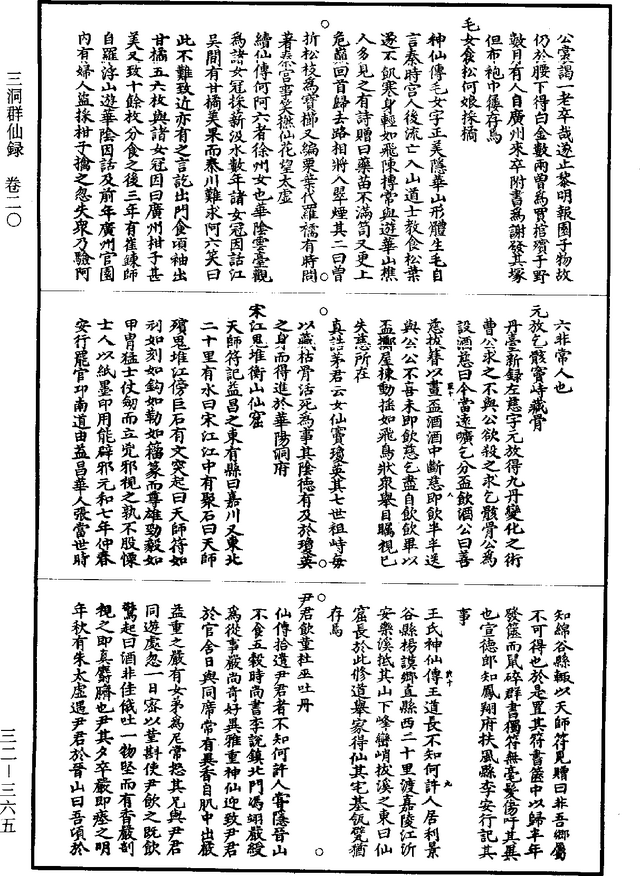 三洞群仙録　卷二〇
三二—三六五
公嘗謁一老卒哉遂止黎明報園子物故
仍於腰下得白金數兩曾為買棺殯于野
數月有人自廣州來卒附書為謝發其塚
但布袍巾履存焉
毛女食松何娘採橘
神仙傳毛女字正美隱華山形體生毛自
言秦時宮人後流亡入山道士教食松葉
遂不飢寒身輕如飛陳摶常與遊華山樵
人多見之有詩贈曰藥苗不滿笥又更上
危巔回首歸去路相將入翠煙其二曰曾
折松枝為寶櫛又編栗葉代羅襦有時問
著秦宮事笑撚仙花望太虛
續仙傳何阿六者徐州女也華陰雲臺觀
為諸女冠採薪汲水數年諸女冠因話江
吳間有甘橘美果而秦川難求阿六笑曰
此不難致近亦有之言訖出門食頃袖出
甘橘五六枚與諸女冠因曰廣州柑子甚
美又致十餘枚分食之後三年有崔鍊師
自羅浮山遊華陰因話及前年廣州官園
內有婦人盜採柑子擒之忽失眾乃驗阿
六非常人也
元放乞骸竇峙藏骨
丹臺新録左慈字元放得九丹變化之術
曹公求之不與公欲殺之求乞骸骨公為
設酒慈曰今當遠曠乞分盃飲酒公曰善
慈拔簪以畫盃酒酒中斷慈即飲半半送
與公公不喜未即飲慈乞盡自飲飲畢以
盃擲屋棟動搖如飛鳥狀眾舉目矚視已
失慈所在
真誥茅君云女仙竇瓊英其七世祖峙每
以藏枯骨活死為事其陰德有及於瓊英
之身而得進於華陽洞府
宋江鬼堆衡山仙窟
天師符記益昌之東有縣曰嘉川又東北
二十里有水曰宋江江中有聚石曰天師
殯鬼堆江傍巨石有文突起曰天師符如
刓如刻如鉤如勒如籀篆而尊雄勁毅如
甲冑猛士仗劒而立覓邪視之孰不股慄
士人以紙墨印用能辟邪元和七年仲春
安行罷官邛南道由益昌華人張當世時
知綿谷縣輙以天師符見贈曰非吾鄉屬
不可得也於是置其符書篋中以歸半年
發篋而鼠碎群書獨符無毫髮傷吁其異
也宣德郎知鳳翔府扶風縣李安行記其
事
王氏神仙傳王道長不知何許人居利景
谷縣楊謨鄉直縣西二十里渡嘉陵江沂
安樂溪抵其山下峰巒峭拔溪之東曰仙
窟長於此修道舉家得仙其宅基瓴甓猶
存焉
尹君飲堇杜巫吐丹
仙傳拾遺尹君者不知何許人常隱晉山
不食五穀時尚書李説鎮北門馮翊嚴綬
為從事嚴尚奇好異雅重神仙迎致尹君
於官舍日與同席常有異香自肌中出嚴
益重之嚴有女弟為尼常怒其兄與尹君
同遊處忽一日密以堇斟使尹飲之既飲
驚起曰酒非佳俄吐一物堅而有香嚴剖
視之即真麝臍也尹其夕卒嚴即瘞之明
年秋有朱太虛遇尹君於晉山曰吾頃於